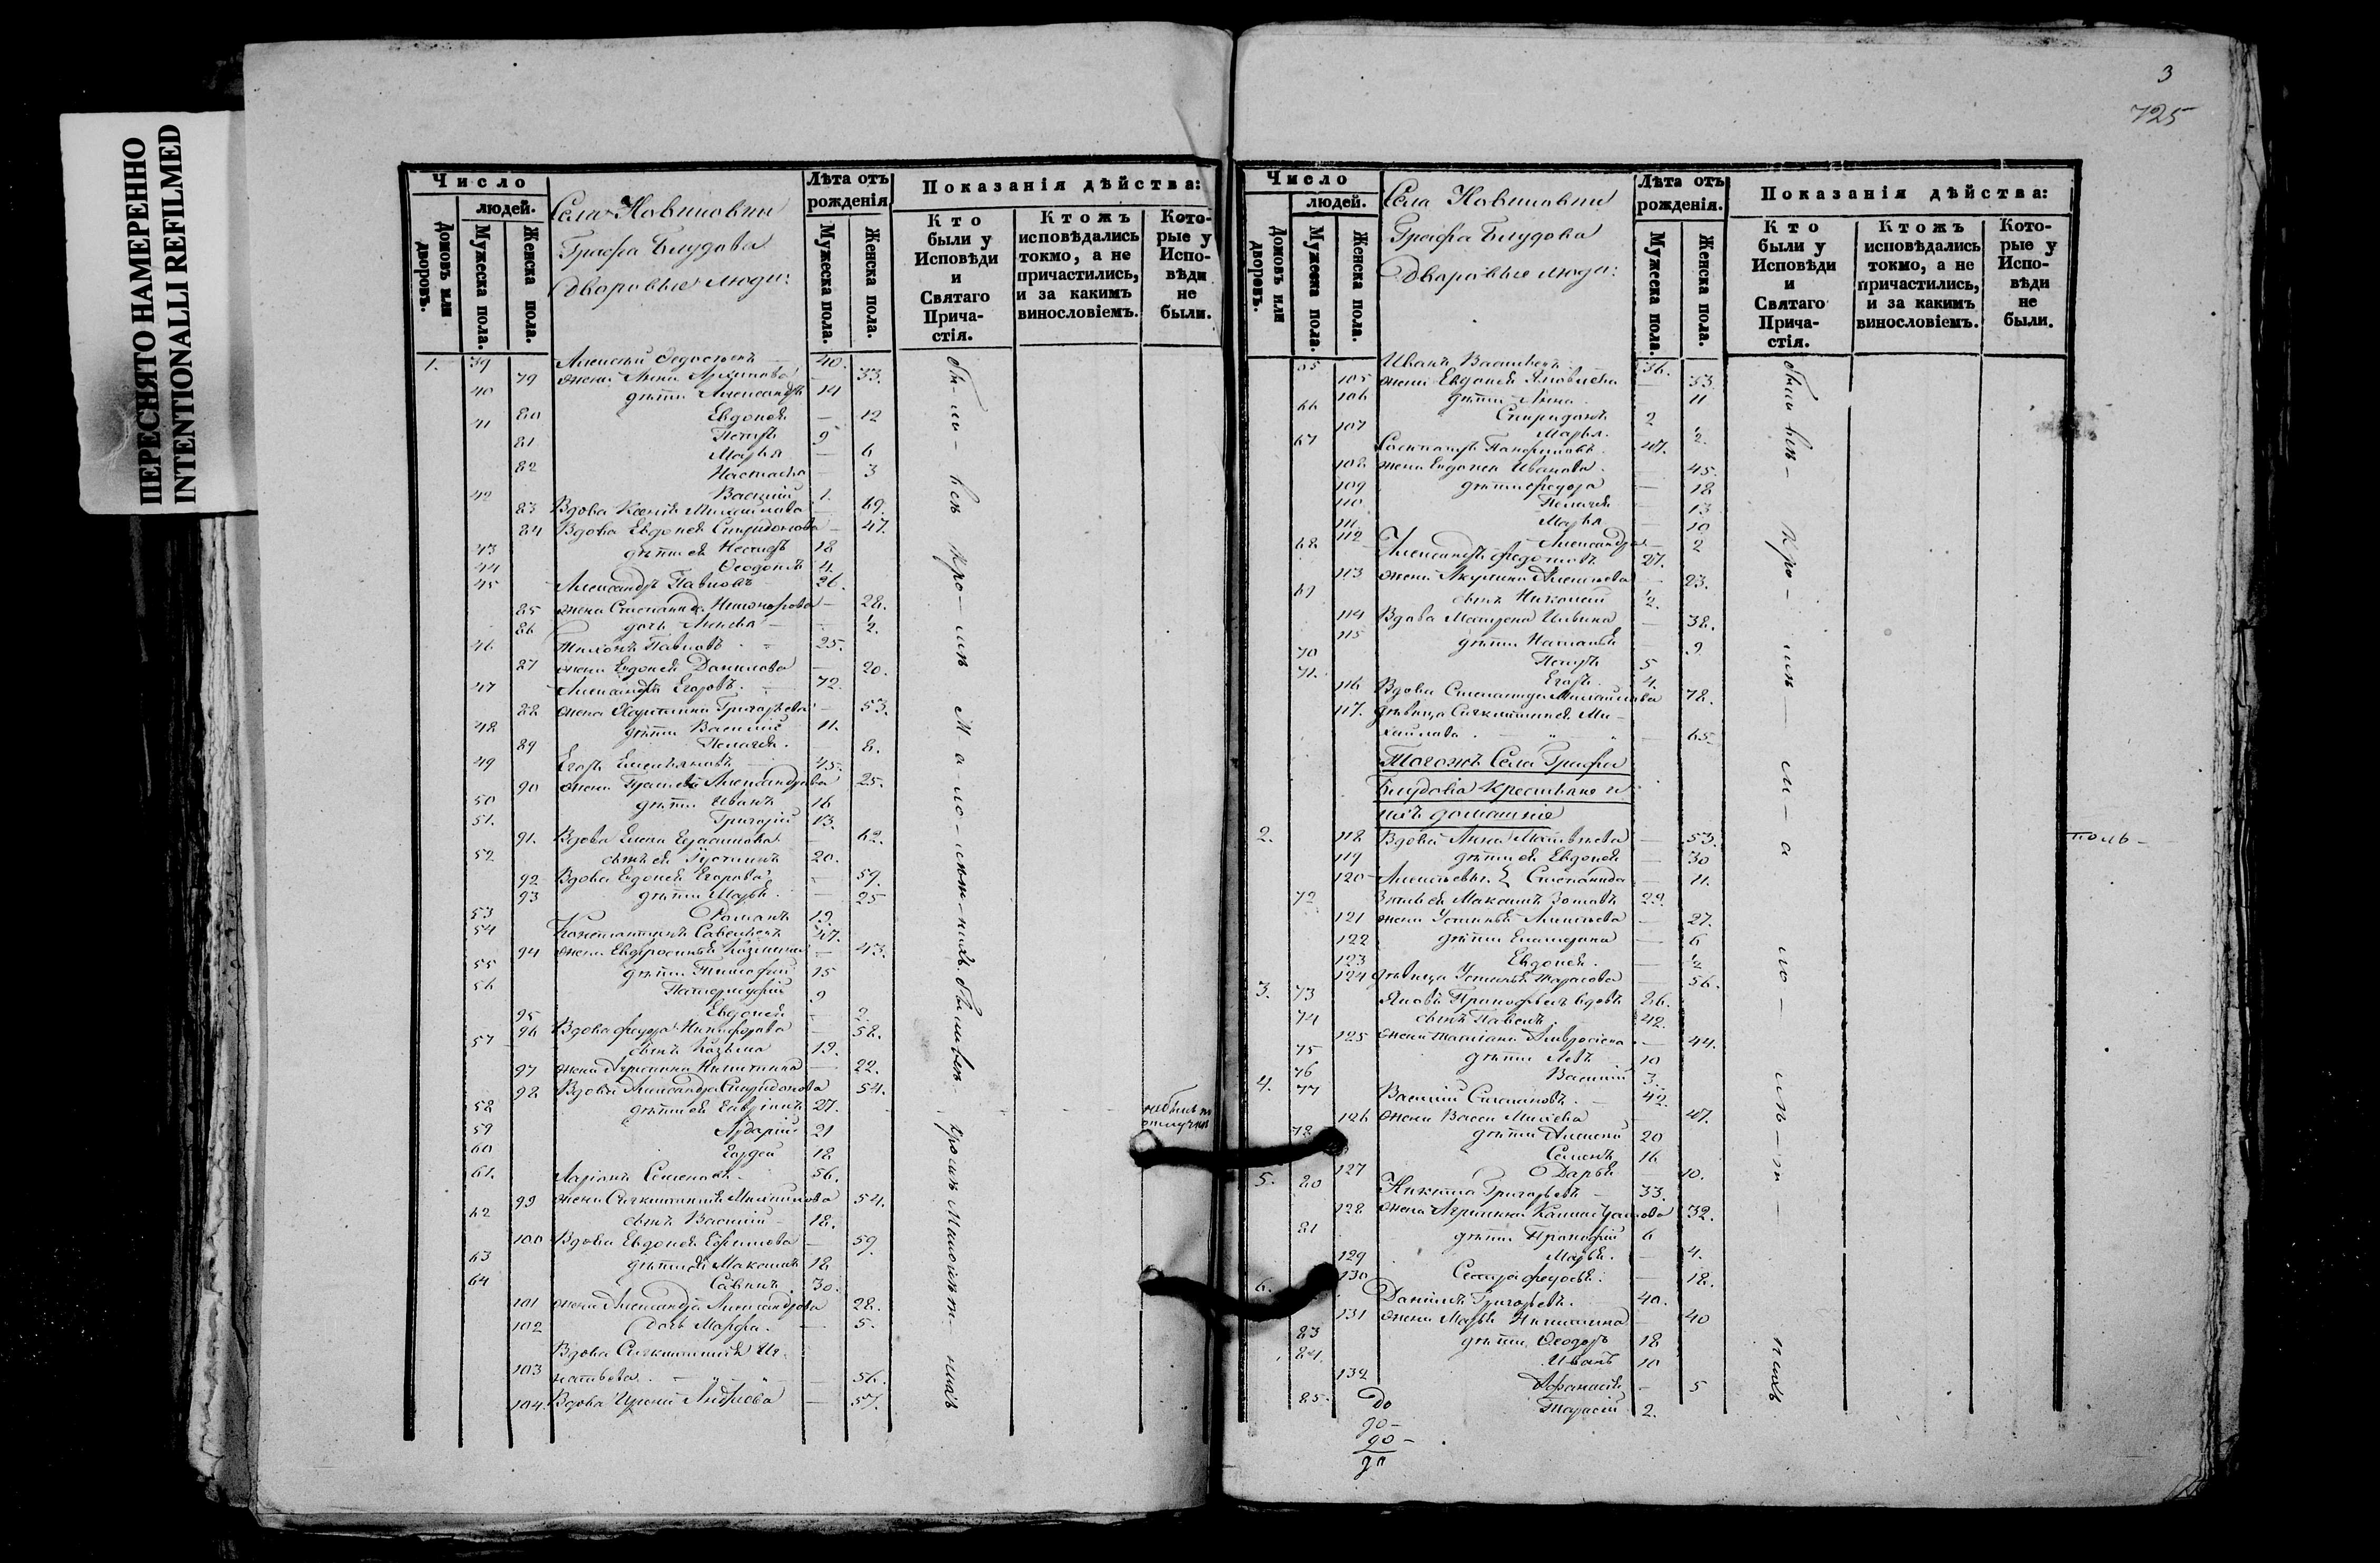 ПЕРЕСНЯТО НАМЕРЕННО
INTENTIONALLI REFILMED
Число
людей.
Домовъ или дворовъ.
Мужеска пола.
Женска пола.
Села Новиновни
Графа Блудова
Дворовые люди:
Лѣта отъ рожденія
Мужеска пола.
Женска пола.
Показанія дѣйства:
Кто были у Исповѣди и Святаго Причастія.
Ктожъ исповѣдались токмо, а не причастились, и за какимъ винословіемъ.
Которые у Исповѣди не были.
1. 39 Алексѣй 40.
79 жена Анна Архипова — 33.
40 дѣти Александръ 14
80 Евдокія — 12
41 Петръ 9
81 Марья — 6
82 Настасья — 3
42 Василій 1.
83 Вдова Ксенія Михайлова — 69.
84 Вдова Евдокія Спиридонова — 47.
43 дѣти ея Несторъ 18
44 Ѳеодотъ 4.
45 Александръ Павловъ 26.
85 жена Степанида Никифорова — 28.
86 дочь — ½.
46 Тихонъ Павловъ 25.
87 жена Евдокія Данилова — 20.
47 Александръ Егоровъ. 72.
88 жена Харитина Григорьева — 53.
48 дѣти Василій 11.
89 Пелагея. — 8.
49 Егоръ Емельяновъ 45.
90 жена Александрова 25.
50 дѣти Иванъ 16
51. Григорій 13.
91. Вдова Елена Герасимова — 62.
52 сынъ ея Іустинъ 20.
92 Вдова Евдокія Егорова — 59.
93 дѣти Марья — 25
53 Романъ 19.
54 Константинъ Савельевъ 47.
94 жена Евфросинья Козмина — 43.
55 дѣти Тимофей 15
56 9
95 Евдокія — 2.
96 Вдова Федора Никифорова — 58.
57 сынъ Козьма 19.
97 жена Агрипина Никитина — 22.
98 Вдова Александра Спиридонова 54.
58 дѣти ея 27.
59 21
60 Гордей 18
61. Ларіонъ Семеновъ 56.
99 жена Сиклитикія Михайлова 54.
62 сынъ Василій 18.
100 Вдова Евдокія Ефимова — 59.
63 дѣти ея Максимъ 18
64 Савинъ 30.
101 жена Александра Александрова 28.
102 дочь Марфа. — 5.
Вдова Сиклитикія Иг-
103 натьева. — 56.
104. Вдова Ирина — 57.
были всѣ кромѣ малолѣтнихъ. были всѣ кромѣ малолѣтнихъ
не былъ по отлучкѣ
3
725
Число
людей.
Домовъ или дворовъ.
Мужеска пола.
Женска пола.
Села Новиновни
Графа Блудова
Дворовые люди:
Лѣта отъ рожденія.
Мужеска пола.
Женска пола.
Показанія дѣйства:
Кто были у Исповѣди и Святаго Причастія.
Ктожъ исповѣдались токмо, а не причастились, и за какимъ винословіемъ.
Которые у Исповѣди не были.
65 Иванъ Васильевъ 36.
105 жена Евдокія Яковлева — 33.
106 дѣти Анна — 11
66 Спиридонъ 2
107 Марья. ½.
67 47.
108 жена Евдокія Иванова. — 45.
109 дѣти Федора — 18
110 Пелагея — 13
111 Марья — 10
112 Александра — 2
68 Александръ Федотовъ 27.
113 жена Акулина Алексѣева — 23.
69 сынъ Николай ½.
114 Вдова Матрена Ильина — 38.
115 дѣти Наталья — 9
70 Петръ 5
71. Егоръ. 4.
116 Вдова Степанида Михайлова 78.
117. дѣвица Сиклитикія Ми-
хайлова. — 65.
Тогожъ Села Графа
Блудова крестьяне и
ихъ домашніе
2. 118 Вдова Анна Матвѣева — 53.
119 дѣти ея Евдокія — 30
120 Алексѣевы. Степанида — 11.
72 Зять ея Максимъ Зотовъ 29.
121 жена Устинья Алексѣева — 27.
122 дѣти Екатерина — 6
123 Евдокія. — ½
124 дѣвица Устинья Тарасова — 56.
3. 73 Яковъ Прокофьевъ вдовъ 86.
74 сынъ Павелъ. 42.
125 жена Татіана Амвросіева — 44.
75 дѣти Левъ 10
76 Василій 3.
4. 77 Василій Степановъ. 42.
126 жена Васса Михеева — 47.
78 дѣти Алексѣй 20
Семенъ 16
127 Дарья 10.
5. 80 Никита Григорьевъ 33.
128 жена Агрипина 32.
81 дѣти Прокофій 6
129 Марья. — 4.
130 Сестра Федосья — 18.
6. Данилъ Григорьевъ. 40.
131 жена Марья Никитина — 40
83 дѣти Ѳеодоръ 18
84. Иванъ 10
132 Афанасія — 5
85 Тарасій 2.
были всѣ кромѣ малолѣтнихъ
до
90 —
90 —
90